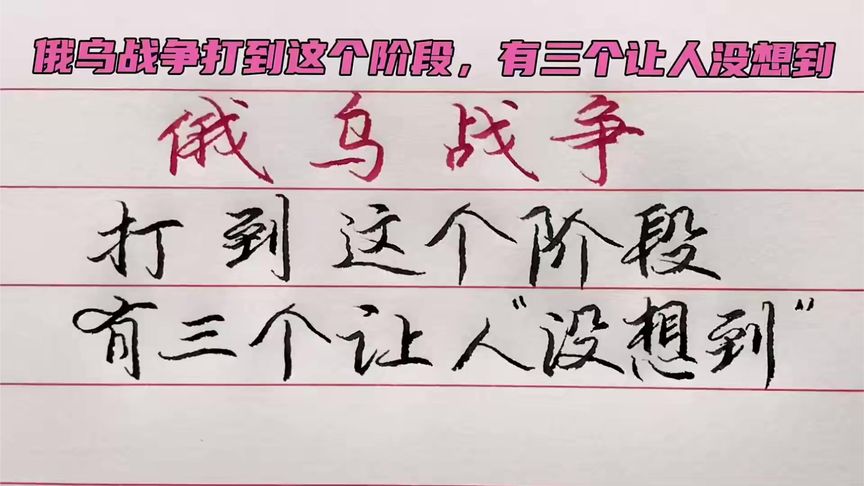 俄乌战争打到这个阶段，有三个让人没想到
俄乌战争
打到这个阶段
有三个让人“没想到”